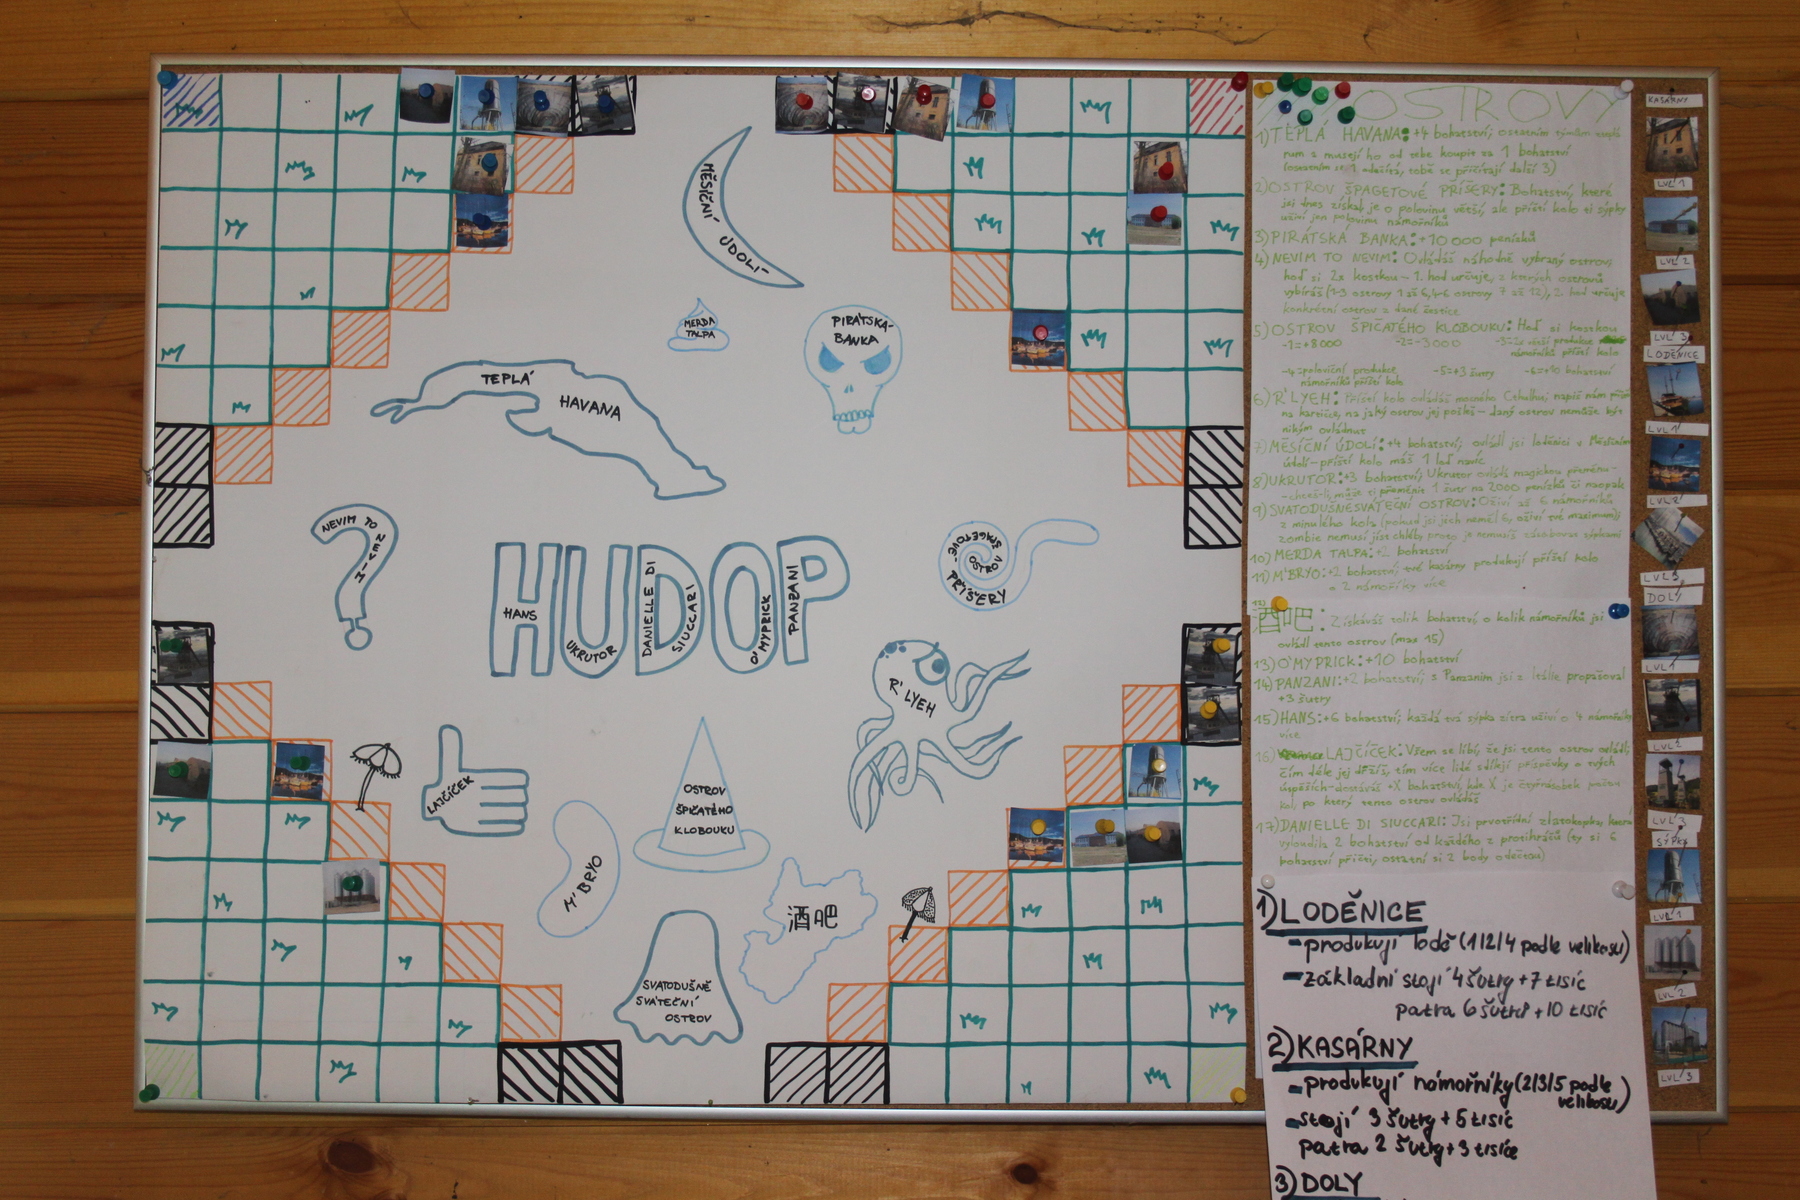 MĚSÍČNÍ ÚDOLÍ
MERDA
TALPA
PIRÁTSKÁ
BANKA
TEPLÁ
HAVANA
NEVIM TO NEVIM
HUDOP
HANS
UKRUTOR
DANIELLE DI
SIUCCARI
O'MYPRICK
PANZANI
ŠPAGETOVÉ
OSTROV
PŘÍŠERY
R'LYEH
LAJČÍČEK
OSTROV
ŠPIČATÉHO
KLOBOUKU
M'BRYO
酒吧
SVATODUŠNĚ
SVÁTEČNÍ
OSTROV
OSTROVY
1) TEPLÁ HAVANA: +4 bohatství; ostatním týmům
rum a musejí ho od tebe koupit za 1 bohatství
2) OSTROV ŠPAGETOVÉ PŘÍŠERY: Bohatství, které
jsi dnes získal je o polovinu větší, ale příští kolo ti sýpky
uživí jen polovinu námořníků
3) PIRÁTSKÁ BANKA: +10 000 penísků
4) NEVIM TO NEVIM: Ovládáš náhodně vybraný ostrov;
hoď si 2x kostkou – 1. hod určuje, z kterých ostrovů
vybíráš (1-3 ostrovy 1 až 6, 4-6 ostrovy 7 až 12), 2. hod určuje
konkrétní ostrov z dané šestice
5) OSTROV ŠPIČATÉHO KLOBOUKU: Hoď si kostkou
-1=+8000 -2=-3000 -3= větší produkce
námořníků příští kolo
-4=poloviční produkce -5=+3 šutry -6=+10 bohatství
námořníků příští kolo
6) R'LYEH: Příští kolo ovládáš mocného Cthulhu; napiš nám
na kartičce, na jaký ostrov jej pošleš – daný ostrov nemůže být
nikým ovládnut
7) MĚSÍČNÍ ÚDOLÍ: +4 bohatství; ovládl jsi loděnici v Měsíčním
údolí – příští kolo máš 1 loď navíc
8) UKRUTOR: +3 bohatství; Ukrutor ovládá magickou přeměnu
- chceš-li, může ti přeměnit 1 šutr na 2000 penísků či naopak
9) SVATODUŠNĚSVÁTEČNÍ OSTROV: Oživí až 6 námořníků
z minulého kola (pokud jsi jich neměl 6, oživí tvé maximum);
zombie nemusí jíst chléb, proto je nemusíš zásobovat sýpkami
10) MERDA TALPA: +2 bohatství
11) M'BRYO: +2 bohatství; tvé kasárny produkují příští kolo
o 2 námořníky více
12) 酒吧: Získáváš tolik bohatství o kolik námořníků jsi
ovládl tento ostrov (max 15)
13) O'MYPRICK: +10 bohatství
14) PANZANI: +2 bohatství; s Panzanim jsi z Itálie propašoval
+3 šutry
15) HANS: +6 bohatství; každá tvá sýpka zítra uživí o 4 námořníky
více
16) LAJČÍČEK: Všem se líbí, že jsi tento ostrov ovládl;
čím déle jej držíš, tím více lidé sdílejí příspěvky o tvých
úspěších - dostáváš +X bohatství, kde X je čtyřnásobek počtu
kol, po který tento ostrov ovládáš
17) DANIELLE DI SIUCCARI: Jsi prvotřídní zlatokopka, která
vyloudila 2 bohatství od každého z protihráčů (ty si 6
bohatství přičti, ostatní si 2 body odečtou)
1) LODĚNICE
- produkují lodě (1/2/4 podle velikosti)
- základní stojí 4 šutry + 7 tisíc
patra 6 šutrů + 10 tisíc
2) KASÁRNY
- produkují námořníky (2/3/5 podle
velikosti)
- stojí 3 šutry + 5 tisíc
patra 2 šutry + 3 tisíce
3) DOLY
KASÁRNY
LVL 1
LVL 2
LVL 3
LODĚNICE
LVL 1
LVL 2
LVL 3
DOLY
LVL 1
LVL 2
LVL 3
SÝPKY
LVL 1
LVL 2
LVL 3